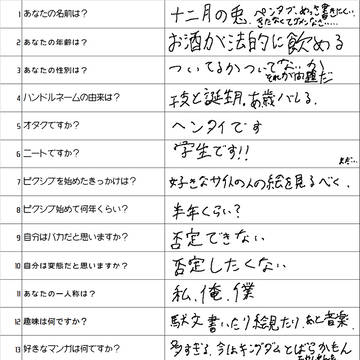 1 あなたの名前は？ 十二月の兎 ペンタブめっさ書きにくい
きたなくてゴメンなさい……
2 あなたの年齢は？ お酒が法的に飲める
3 あなたの性別は？ ついてるかついてないか
それが問題だ
4 ハンドルネームの由来は？ 干支と誕生月。歳バレる。
5 オタクですか？ ヘンタイです
6 ニートですか？ 学生です!!
まだ…
7 ピクシブを始めたきっかけは？ 好きなサイトの人の絵を見るべく。
8 ピクシブ始めて何年くらい？ 半年くらい？
9 自分はバカだと思いますか？ 否定できない
10 自分は変態だと思いますか？ 否定したくない
11 あなたの一人称は？ 私、俺、僕
12 趣味は何ですか？ 駄文書いたり絵見たり。あと音楽。
13 好きなマンガは何ですか？ 多すぎる。今はキングダムとばらかもん